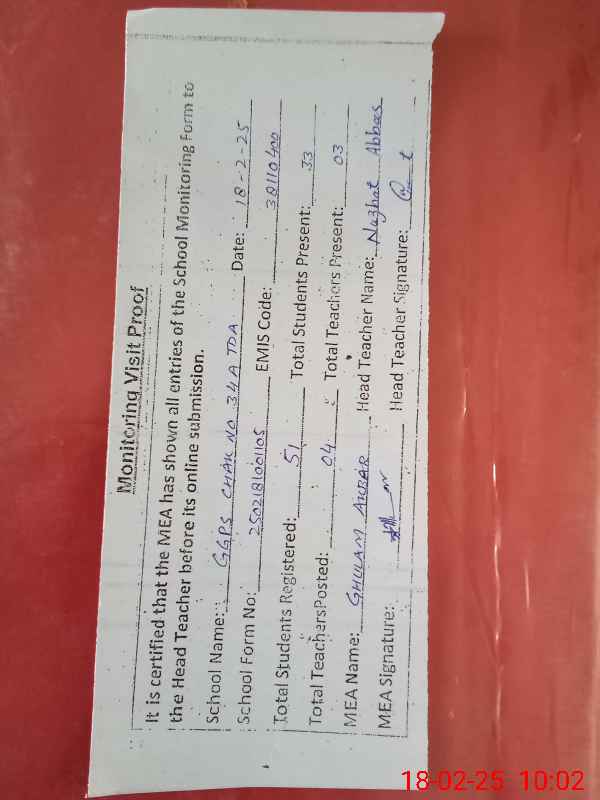 Monitoring Visit Proof
It is certified that the MEA has shown all entries of the School Monitoring Form to
the Head Teacher before its online submission.
School Name: GGPS CHAK NO 34A TDA Date: 18-2-25
School Form No: 2502181001105 EMIS Code: 38110400
Total Students Registered: 51 Total Students Present: 33
Total TeachersPosted: 04 Total Teachers Present: 03
MEA Name: GHULAM AKBAR Head Teacher Name: Nazhat Abbas
MEA Signature: Head Teacher Signature:
18-02-25 10:02